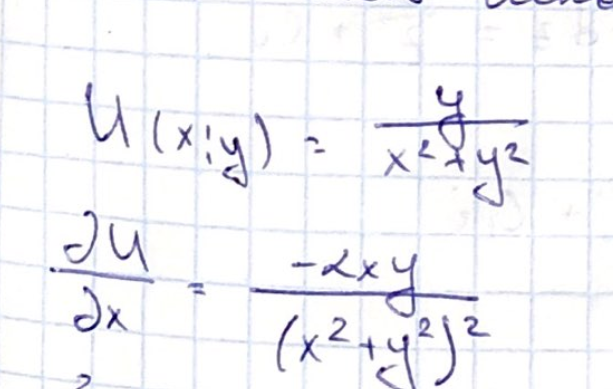 U(x;y) = y/(x²+y²)
∂U/∂x = -2xy/(x²+y²)²